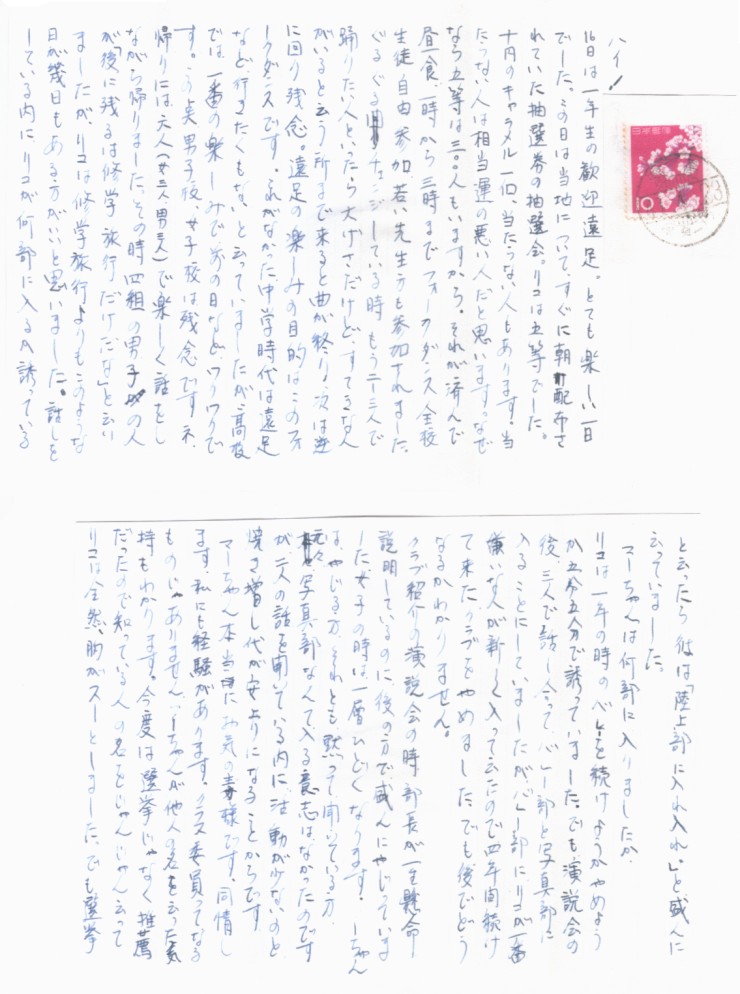 ハイ!
16日は一年生の歓迎遠足。とても楽しい一日
でした。この日は当地について、すぐに朝配布さ
れていた抽選券の抽選会。リコは五等でした。
十円のキャラメル一口、当たらない人もあります。当
たらない人は相当運の悪い人だと思います。なぜ
なら五等は三〇〇人もいますから。それが済んで
昼食、一時から三時までフォークダンス 全校
生徒 自由参加、若い先生方も参加されました。
ぐるぐるチェンジしている時、もう二~三人で
踊りたい人といったら大げさだけど、すてきな人
がいると云う所まで来ると曲が終り、次は逆
に回り残念。遠足の楽しみの目的はこのフォ
ークダンスです。それがなかった中学時代は遠足
など、行きたくもないと云っていましたが、高校
では、一番の楽しみで前の日などワクワクで
す。この点男子校、女子校は残念ですネ。
帰りには、六人(女三人男三人)で楽しく話をし
ながら帰りました。その時四組の男子の人
が「後に残るは修学旅行だけだな」と云い
ましたが、リコは修学旅行よりもこのような
日が幾日もある方がいいと思いました。話しを
している内に、リコが何部に入るか誘っている
と云ったら彼は「陸上部に入れ入れ。」と盛んに
云っていました。
マーちゃんは何部に入りましたか。
リコは一年の時のバレーを続けようかやめよう
か五分五分で誘っていました。でも演説会の
後、三人で話し合って、バレー部と写真部に
入ることにしていましたがバレー部にリコが一番
嫌いな人が新しく入って云たので四年間続け
て来たクラブをやめました。でも後でどう
なるかわかりません。
クラブ紹介の演説会の時部長が一生懸命
説明しているのに後の方で盛んにやじっていま
した。女子の時は一層ひどくなります。 ーちゃん
は、やじる方、それとも黙って聞いている方。
元々、写真部なんて入る意志はなかったのです
が、二人の話を聞いている内に、活動が少ないのと、
焼き増し代が安上りになることからです。
マーちゃん本当にお気の毒様です。同情し
ます。私にも経験があります。クラス委員ってなる
ものじゃありません。 ーちゃんが他人の名を云った気
持もわかります。今度は選挙じゃなく推薦
だったので知っている人の名をじゃんじゃん云って
リコは全然、胸がスーとしました。でも選挙
日本郵便
10